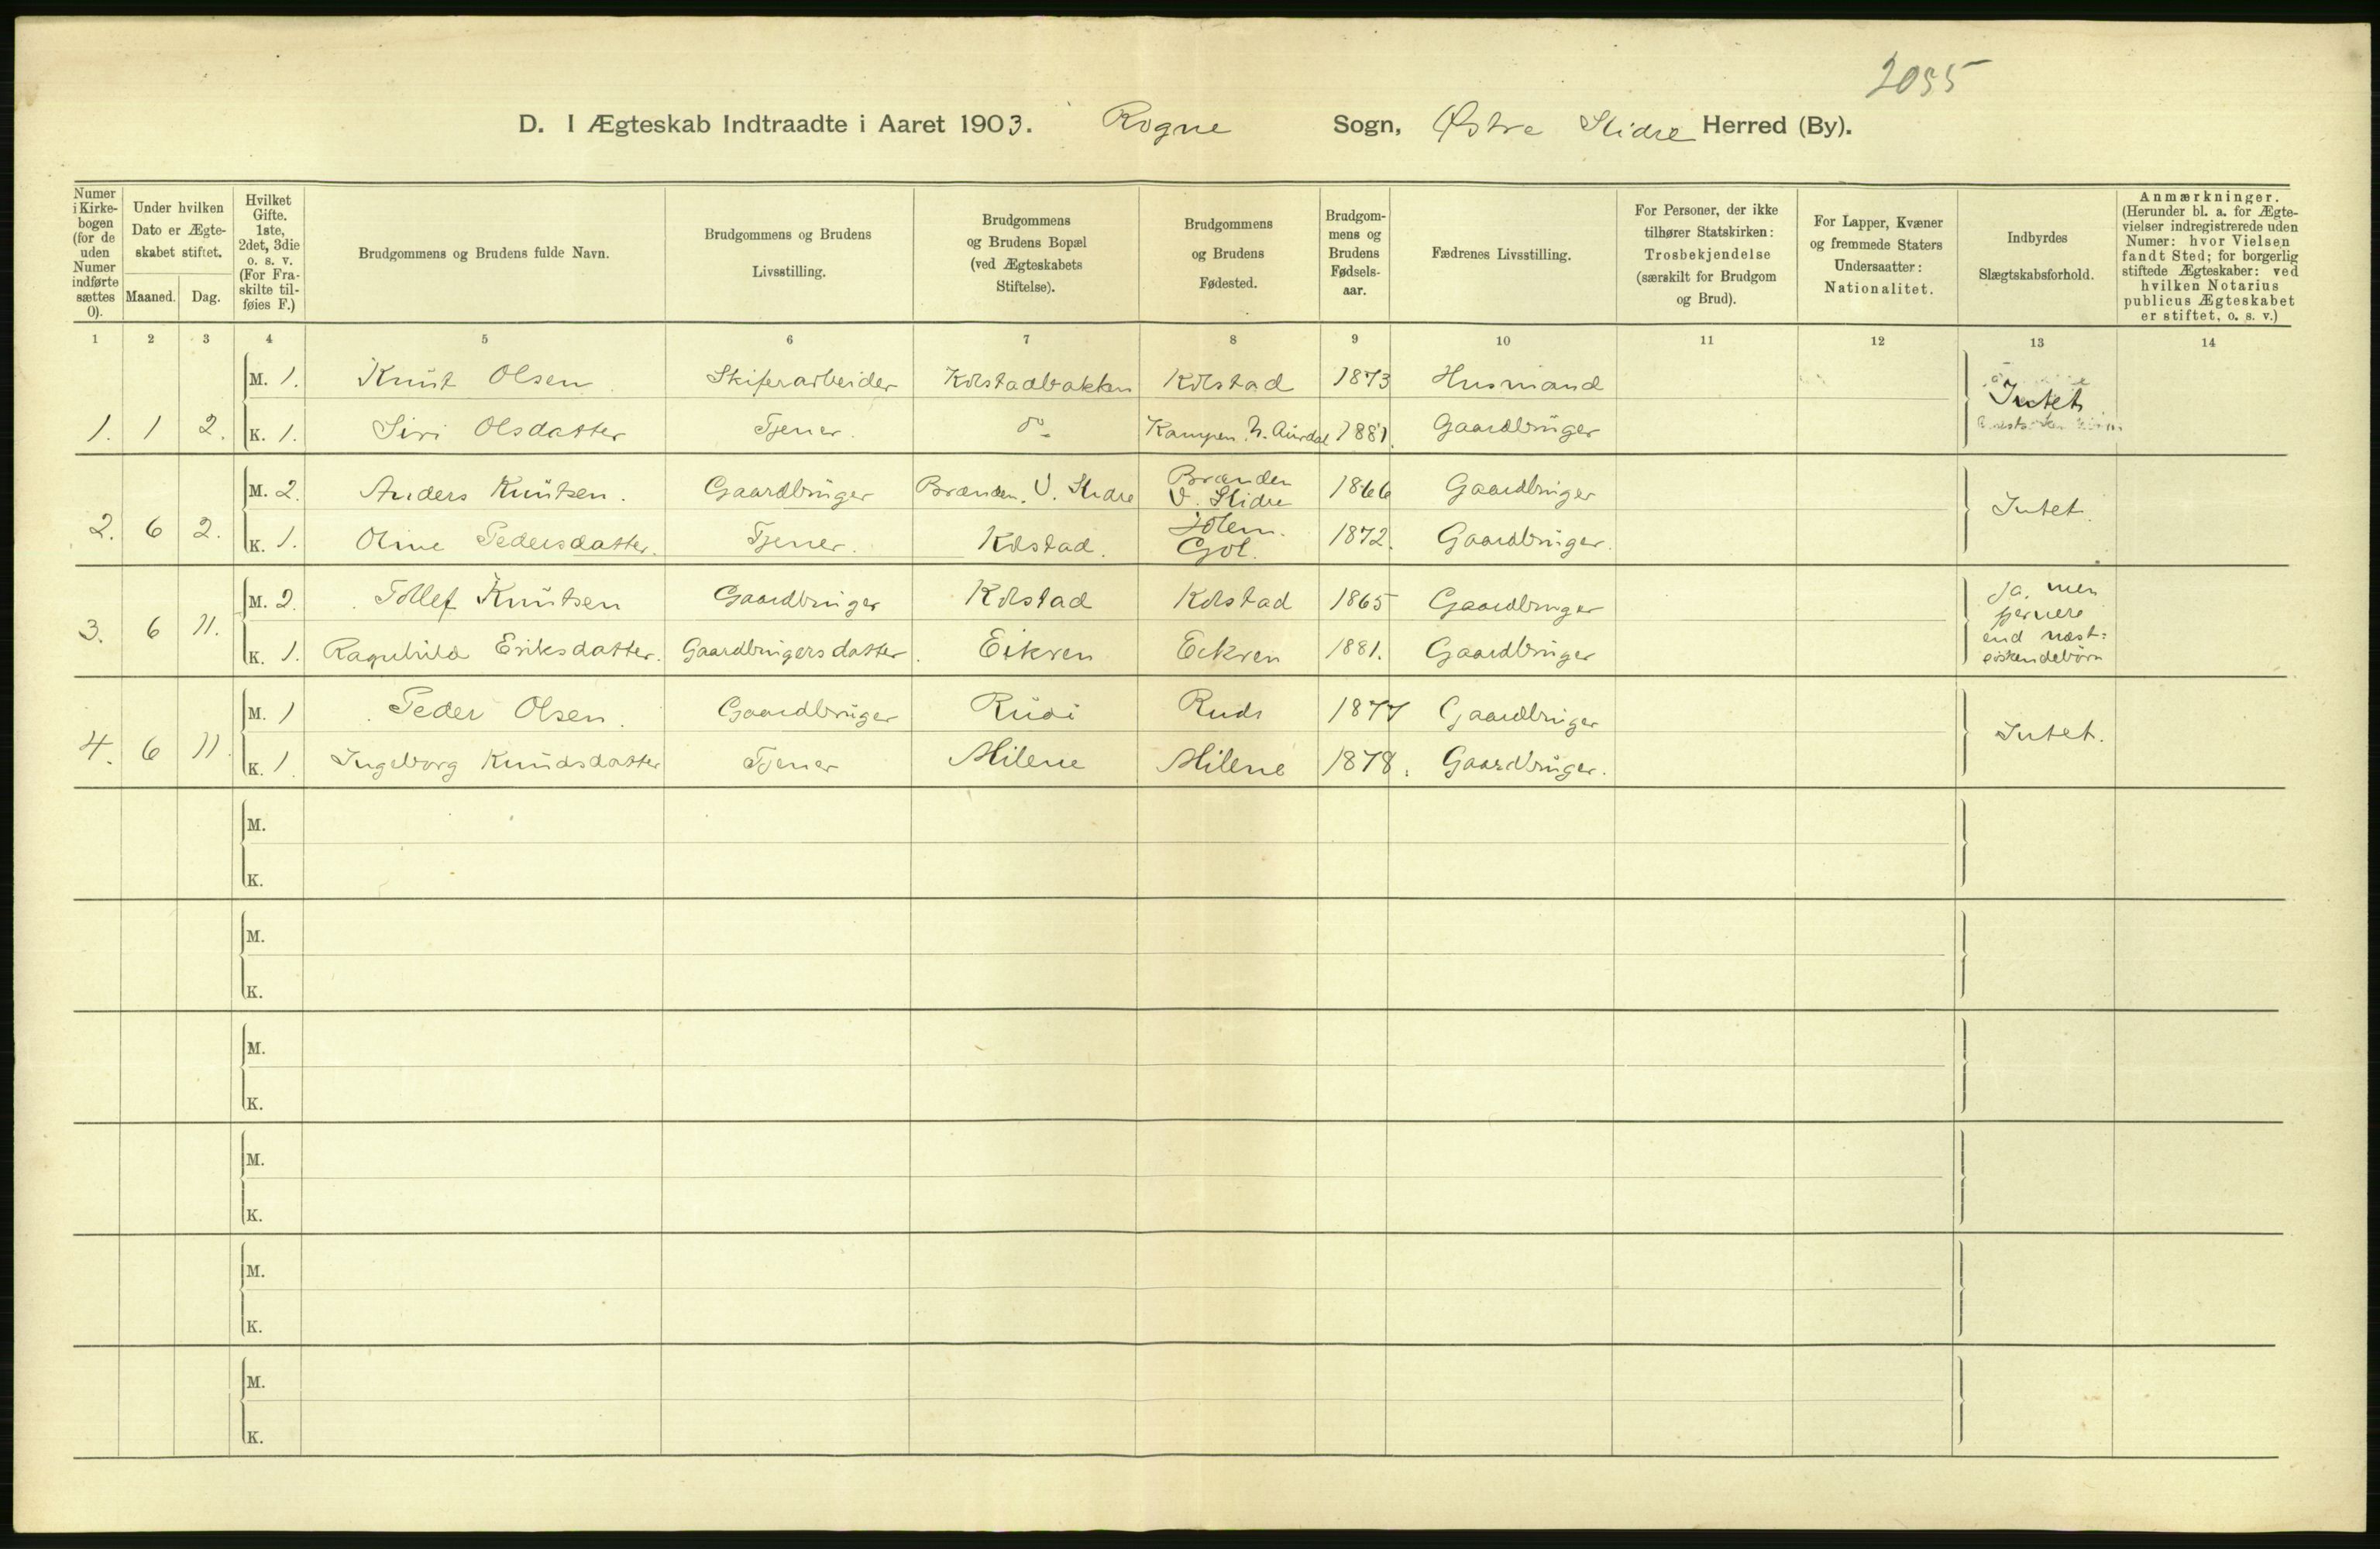 2055
D. I Ægteskab Indtraadte i Aaret 1903. Rogne Sogn, Østre Slidre Herred (By).
Numer i Kirke-bogen (for de uden Numer indførte sættes 0).
Under hvilken Dato er Ægte-skabet stiftet.
Maaned. Dag.
Hvilket Gifte. 1ste, 2det, 3die o. s. v. (For Fra-skilte til-føies F.)
Brudgommens og Brudens fulde Navn.
Brudgommens og Brudens Livsstilling.
Brudgommens og Brudens Bopæl (ved Ægteskabets Stiftelse).
Brudgommens og Brudens Fødested.
Brudgom-mens og Brudens Fødsels-aar.
Fædrenes Livsstilling.
For Personer, der ikke tilhører Statskirken: Trosbekjendelse (særskilt for Brudgom og Brud).
For Lapper, Kvæner og fremmede Staters Undersaatter: Nationalitet.
Indbyrdes Slægtskabsforhold.
Anmærkninger. (Herunder bl. a. for Ægte-vielser indregistrerede uden Numer: hvor Vielsen fandt Sted; for borgerlig stiftede Ægteskaber: ved hvilken Notarius publicus Ægteskabet er stiftet, o. s. v.)
1 2 3 4 5 6 7 8 9 10 11 12 13 14
M. 1. Knut Olsen Skiferarbeider Kolstadbakken Kolstad 1873 Husmand Intet
1. 1 2. K. 1. Siri Olsdatter Tjener. do Kampen, N. Aurdal 1881. Gaardbruger
M. 2. Anders Knutsen. Gaardbruger Brænden, V. Slidre Brænden V. Slidre 1866 Gaardbruger Intet.
2. 6 2. K. 1. Oline Pedersdatter. Tjener. Kolstad. Golen. Gol. 1872. Gaardbruger.
M. 2. Tollef Knutsen Gaardbruger Kolstad Kolstad 1865 Gaardbruger Ja, men fjernere
3. 6 11. K. 1. Ragnhild Eriksdatter. Gaardbrugersdatter. Eikren Eikren 1881. Gaardbruger end næst=søskendebørn
M. 1 Peder Olsen. Gaardbruger Rudi Rudi 1877 Gaardbruger Intet.
4. 6 11. K. 1. Ingeborg Knudsdatter Tjener Milene Milene 1878. Gaardbruger.
M.
K.
M.
K.
M.
K.
M.
K.
M.
K.
M.
K.